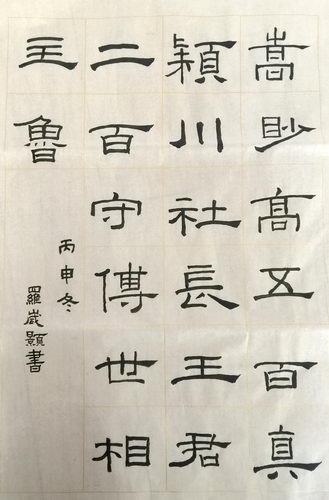 嵩眇高五百真
穎川社長王君
二百守傅世相
主魯
丙申冬
羅崴顥書